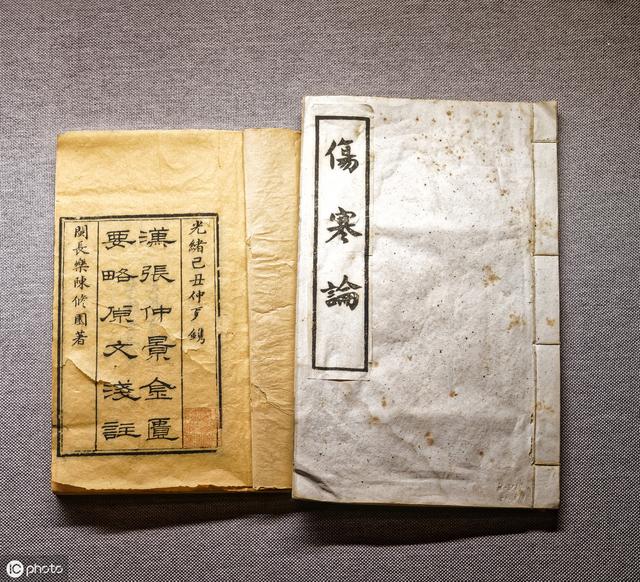 光緒己丑仲夏鐫
漢張仲景金匱
要略原文淺註
閩長樂陳修園著
傷寒論
iC photo